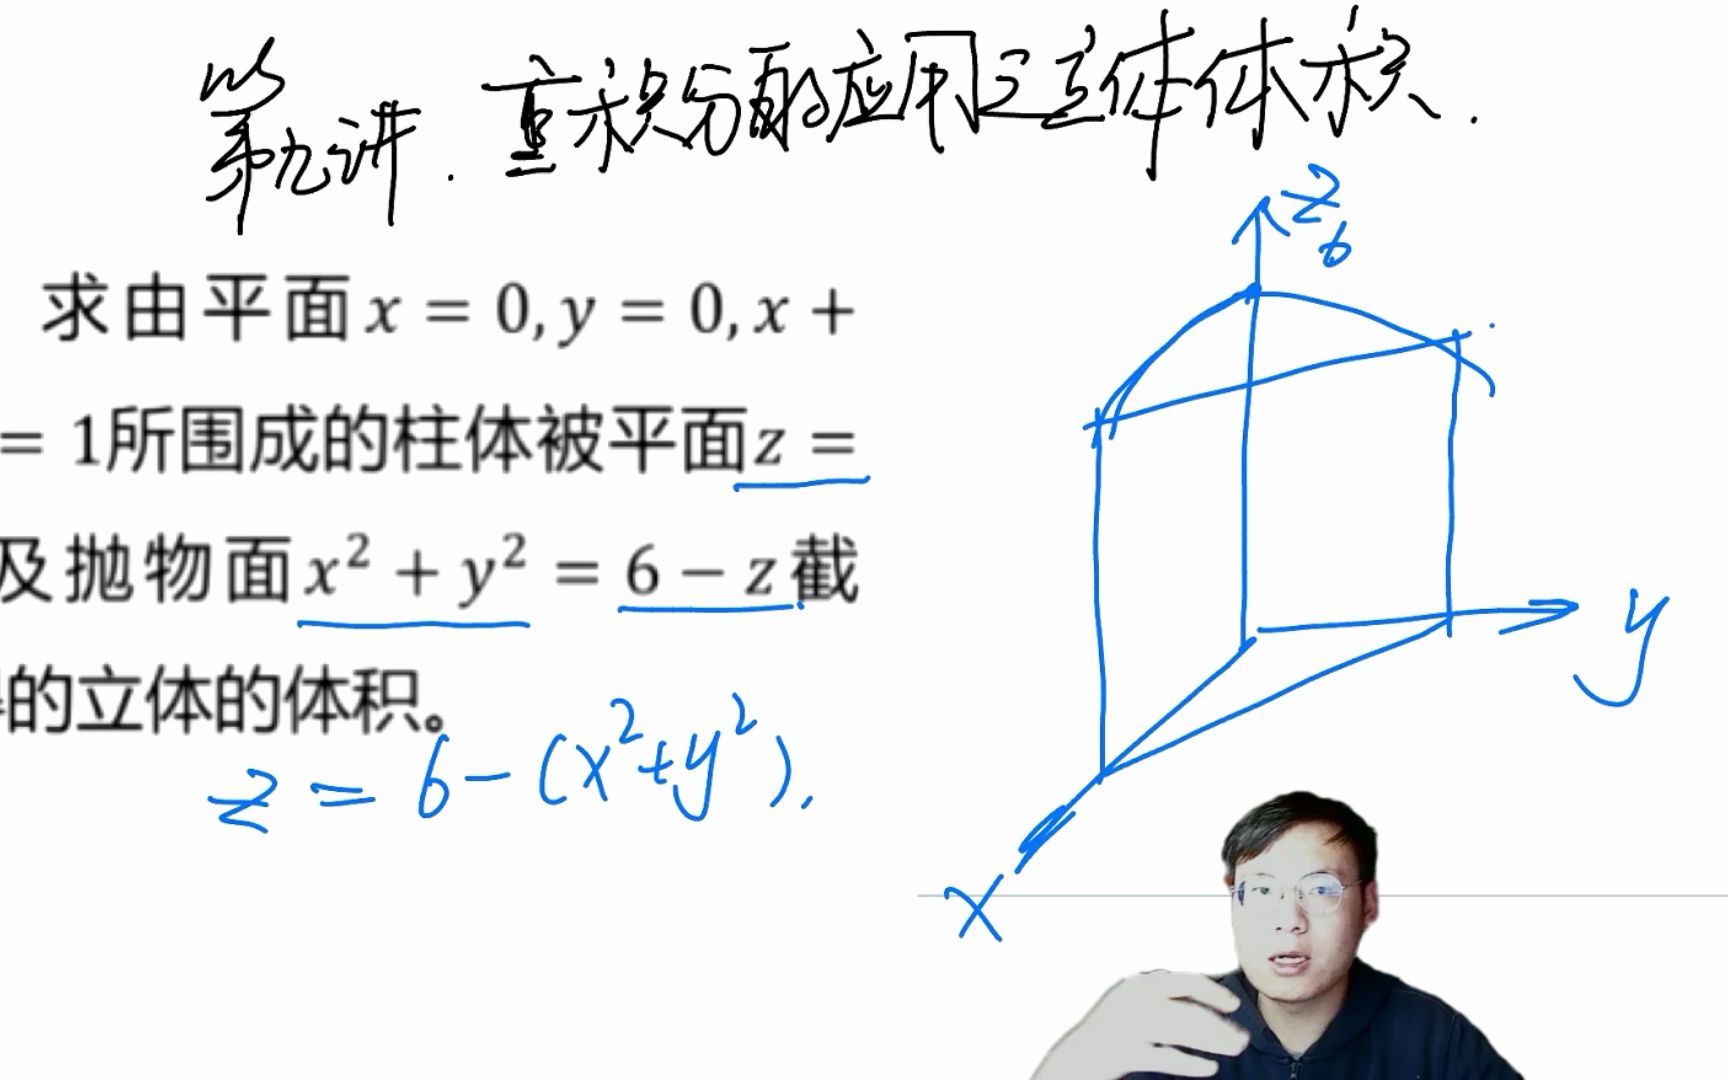 第九讲. 重积分的应用之立体体积.
求由平面x = 0, y = 0, x +
= 1所围成的柱体被平面z =
及抛物面x² + y² = 6 − z截
的立体的体积。
z = 6 - (x²+y²).
z
6
y
x